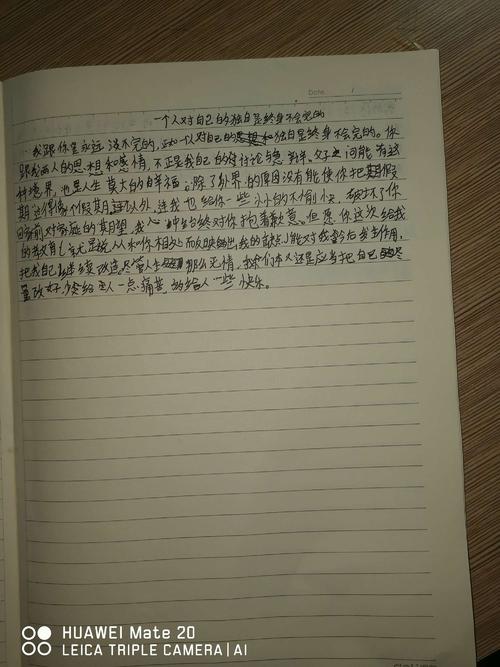 Date
一个人对自己的独白是终身不会完的
我跟你是永远谈不完的，正如一个人对自己的独白是终身不会完的。你
跟我两人的思想和感情，不正是我自己的思想和感情吗？父子之间能有这
种境界，也是人生莫大的幸福。除了外界的原因没有能使你把假
期过得像个假期以外，连我也给你一些小小的不愉快，破坏了你
回家前对家庭的期望。我心中始终对你抱着歉意。但愿你这次给我
的教育（就是说从和你相处而反映出我的缺点）能对我今后发生作用，
把我自己继续改造。尽管人生那么无情，我们本人还是应当把自己尽
量改好，少给人一点痛苦，多给人一些快乐。
HUAWEI Mate 20
LEICA TRIPLE CAMERA | AI